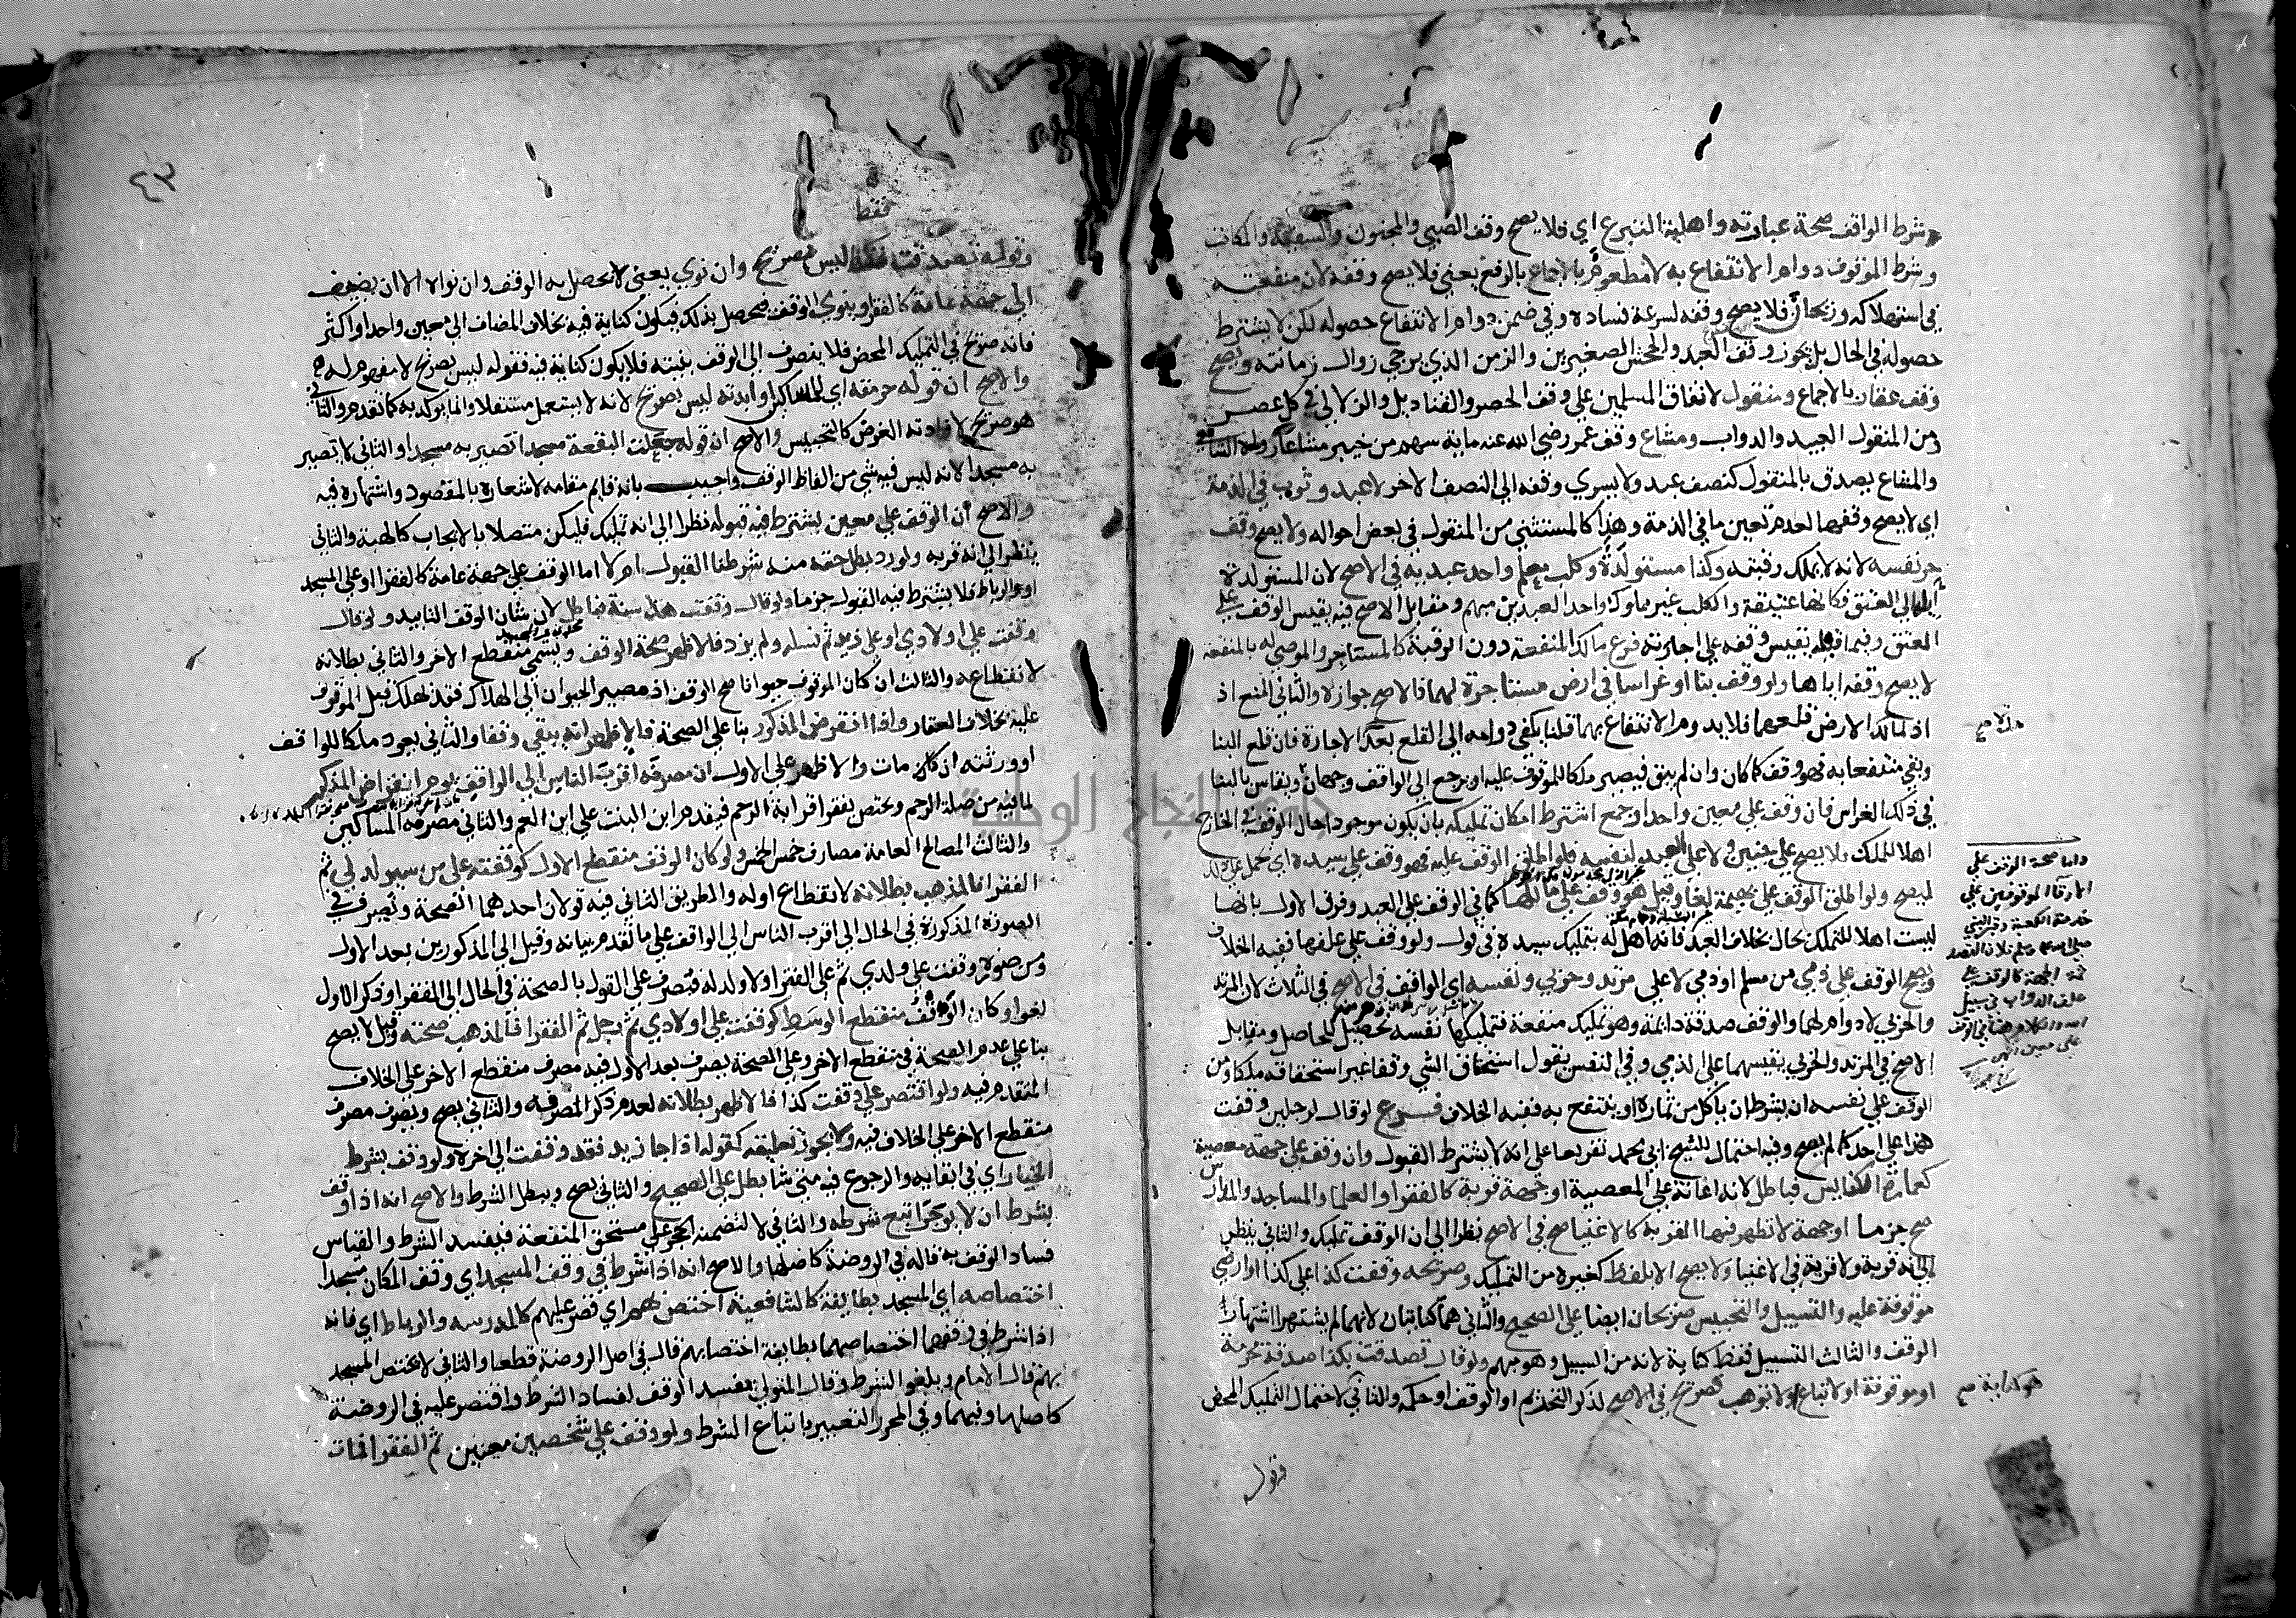 شرط الواقف صحة عبارته واهلية التبرع اي فلا يصح وقف الصبي والمجنون والسفيه والمكاتب
وشرط الموقوف دوام الانتفاع به لا مطعوم بالرفع يعني فلا يصح وقفه لان منفعته
في استهلاكه وريحان فلا يصح وقفه لسرعة فساده وفي ضمن دوام الانتفاع حصوله لكن لا يشترط
حصوله في الحال بل يجوز وقف العبد والجحش الصغيرين والزمن الذي يرجي زوال زمانته ويصح
وقف عقار بالاجماع ومنقول لاتفاق المسلمين علي وقف الحصر والقناديل والزلالي في كل عصر
ومن المنقول العبيد والدواب ومشاع وقف عمر رضي الله عنه ماية سهم من خيبر مشاعا رواه الشافعي
والمشاع يصدق بالمنقول كنصف عبد ولا يسري وقفه الي النصف الاخر لا عبد وثوب في الذمة
اي لا يصح وقفهما لعدم تعين ما في الذمة وهذا كالمستثني من المنقول في بعض احواله ولا يصح وقف
حر نفسه لانه لا يملك رقبته وكذا مستولدة وكلب معلم واحد عبديه في الاصح لان المستولدة
ايلة الي العتق فكانها عتيقة والكلب غير مملوك واحد العبدين مبهم ومقابل الاصح فيه يقيس الوقف علي
العتق وفيما قبله يقيس وقفه علي اجارته فرع مالك المنفعة دون الرقبة كالمستاجر والموصي له بالمنفعة
لا يصح وقفه اياها ولو وقف بنا او غراسا في ارض مستاجرة لهما فالاصح جوازه والثاني المنع اذ
اذ لمالك الارض قلعهما فلا يدوم الانتفاع بهما قلنا يكفي دوامه الي القلع بعد الاجارة فان قلع البنا
وبقي منتفعا به فهو وقف كما كان وان لم يبق فيصير ملكا للموقوف عليه او يرجع الي الواقف وجهان ويقاس بالبنا
في ذلك الغراس فان وقف علي معين واحد او جمع اشترط امكان تمليكه بان يكون موجودا حال الوقف في الخارج
اهلا للملك فلا يصح علي جنين ولا علي العبد لنفسه فلو اطلق الوقف عليه فهو وقف علي سيده اي يحمل علي ذلك
ليصح ولو اطلق الوقف علي بهيمة لغا وقيل هو وقف علي مالكها كما في الوقف علي العبد وفرق الاول بانها
ليست اهلا للتملك بحال بخلاف العبد فانه اهل له بتمليك سيده في قول ولو وقف علي علفها ففيه الخلاف
ويصح الوقف علي ذمي من مسلم او ذمي لا علي مرتد وحربي ونفسه اي الواقف في الاصح في الثلاث لان المرتد
والحربي لا دوام لهما والوقف صدقة دائمة وهو تمليك منفعة فتمليكها نفسه تحصيل للحاصل ومقابل
الاصح في المرتد والحربي يقيسهما علي الذمي وفي النفس يقول استحقاق الشي وقفا غير استحقاقه ملكا ومن
الوقف علي نفسه ان يشرط ان ياكل من ثماره او ينتفع به ففيه الخلاف فرع لو قال لرجلين وقفت
هذا علي احدكما لم يصح وفيه احتمال للشيخ ابي محمد تفريعا علي انه لا يشترط القبول وان وقف علي جهة معصية
كعمارة الكنايس فباطل لانه اعانة علي المعصية او جهة قربة كالفقرا والعلما والمساجد والمدارس
صح جزما او جهة لا تظهر فيها القربة كالاغنيا صح في الاصح نظرا الي ان الوقف تمليك والثاني ينظر
الي انه قربة ولا قربة في الاغنيا ولا يصح الا بلفظ كغيره من التمليك وصريحه وقفت كذا علي كذا او ارضي
موقوفة عليه والتسبيل والتحبيس صريحان ايضا علي الصحيح والثاني هما كنايتان لانهما لم يشتهرا اشتهار
الوقف والثالث التسبيل فقط كناية لانه من السبيل وهو مبهم ولو قال تصدقت بكذا صدقة محرمة
او موقوفة او لا تباع ولا توهب فصريح في الاصح لذكر التحريم او الوقف او حكمه والثاني لاحتمال التمليك المحض
هذا الاصح
واما صحة الوقف علي
الارقا الموقوفين علي
خدمة الكعبة وقبر النبي
صلي الله عليه وسلم فلان القصد
ثمة الجهة كالوقف علي
علف الدواب في سبيل
علي معين
هو كناية صح
وقول
٤٣
فقط
وقوله تصدقت فقط ليس بصريح وان نوي يعني لا يحصل به الوقف وان نواه الا ان يضيف
الي جهة عامة كالفقرا وينوي الوقف فيحصل بذلك فيكون كناية فيه بخلاف المضاف الي معين واحد او اكثر
فانه صريح في التمليك المحض فلا ينصرف الي الوقف بنيته فلا يكون كناية فيه فقوله ليس بصريح لا مفهوم له
والاصح ان قوله حرمته اي للمساكين او ابدته ليس بصريح لانه لا يستعمل مستقلا وانما يوكد به كما تقدم والثاني
هو صريح لافادته الغرض كالتحبيس والاصح ان قوله جعلت البقعة مسجدا تصير به مسجدا والثاني لا تصير
به مسجدا لانه ليس فيه شي من الفاظ الوقف واجيب بانه قايم مقامه لاشعاره بالمقصود واشتهاره فيه
والاصح ان الوقف علي معين يشترط فيه قبوله نظرا الي انه تمليك فليكن متصلا بالايجاب كالهبة والثاني
ينظر الي انه قربة ولو رد بطل حقه منه شرطنا القبول ام لا اما الوقف علي جهة عامة كالفقرا او علي المسجد
او الرباط فلا يشترط فيه القبول جزما ولو قال وقفت هذا سنة فباطل لان شان الوقف التابيد ولو قال
وقفت علي اولادي او علي زيد ثم نسله ولم يزد فالاظهر صحة الوقف ويسمي منقطع الاخر والثاني بطلانه
لانقطاعه والثالث ان كان الموقوف حيوانا صح الوقف اذ مصير الحيوان الي الهلاك فقد يهلك قبل الموقوف
عليه بخلاف العقار واذا انقرض المذكور بنا علي الصحة فالاظهر انه يبقي وقفا والثاني يعود ملكا للواقف
او ورثته ان كان مات والاظهر علي الاول ان مصرفه اقرب الناس الي الواقف يوم انقراض المذكور
لما فيه من صلة الرحم ويختص بفقرا قرابة الرحم فيقدم ابن البنت علي ابن العم والثاني مصرفه المساكين
والثالث المصالح العامة مصارف خمس الخمس ولو كان الوقف منقطع الاول كوقفته علي من سيولد لي ثم
الفقرا فالمذهب بطلانه لانقطاع اوله والطريق الثاني فيه قولان احدهما الصحة وتصرف في
الصورة المذكورة في الحال الي اقرب الناس الي الواقف علي ما تقدم بيانه وقيل الي المذكورين بعد الاول
ومن صوره وقفت علي ولدي ثم علي الفقرا ولا ولد له فتصرف علي القول بالصحة في الحال الي الفقرا وذكر الاول
لغو او كان الوقف منقطع الوسط كوقفت علي اولادي ثم رجل ثم الفقرا فالمذهب صحته وقيل لا يصح
بنا علي عدم الصحة في منقطع الاخر وعلي الصحة يصرف بعد الاول فيه مصرف منقطع الاخر علي الخلاف
المتقدم فيه ولو اقتصر علي وقفت كذا فالاظهر بطلانه لعدم ذكر المصرف فيه والثاني يصح ويصرف مصرف
منقطع الاخر علي الخلاف فيه ولا يجوز تعليقه كقوله اذا جا زيد فقد وقفت الي اخره ولو وقف بشرط
الخيار اي في ابقايه والرجوع فيه متي شا بطل علي الصحيح والثاني يصح ويبطل الشرط والاصح انه اذا وقف
بشرط ان لا يوجر اتبع شرطه والثاني لا لتضمنه الحجر علي مستحق المنفعة فيفسد الشرط والقياس
فساد الوقف به قاله في الروضة كاصلها والاصح انه اذا شرط في وقف المسجد اي وقف المكان مسجدا
اختصاصه اي المسجد بطايفة كالشافعية اختص بهم اي قصر عليهم كالمدرسة والرباط اي فانه
اذا شرط في وقفهما اختصاصهما بطايفة اختصا بهم قال في اصل الروضة قطعا والثاني لا يختص المسجد
بهم قال الامام ويلغو الشرط وقال المتولي يفسد الوقف لفساد الشرط واقتصر عليه في الروضة
كاصلها وفيهما وفي المحرر التعبير باتباع الشرط ولو وقف علي شخصين معينين ثم الفقرا فمات